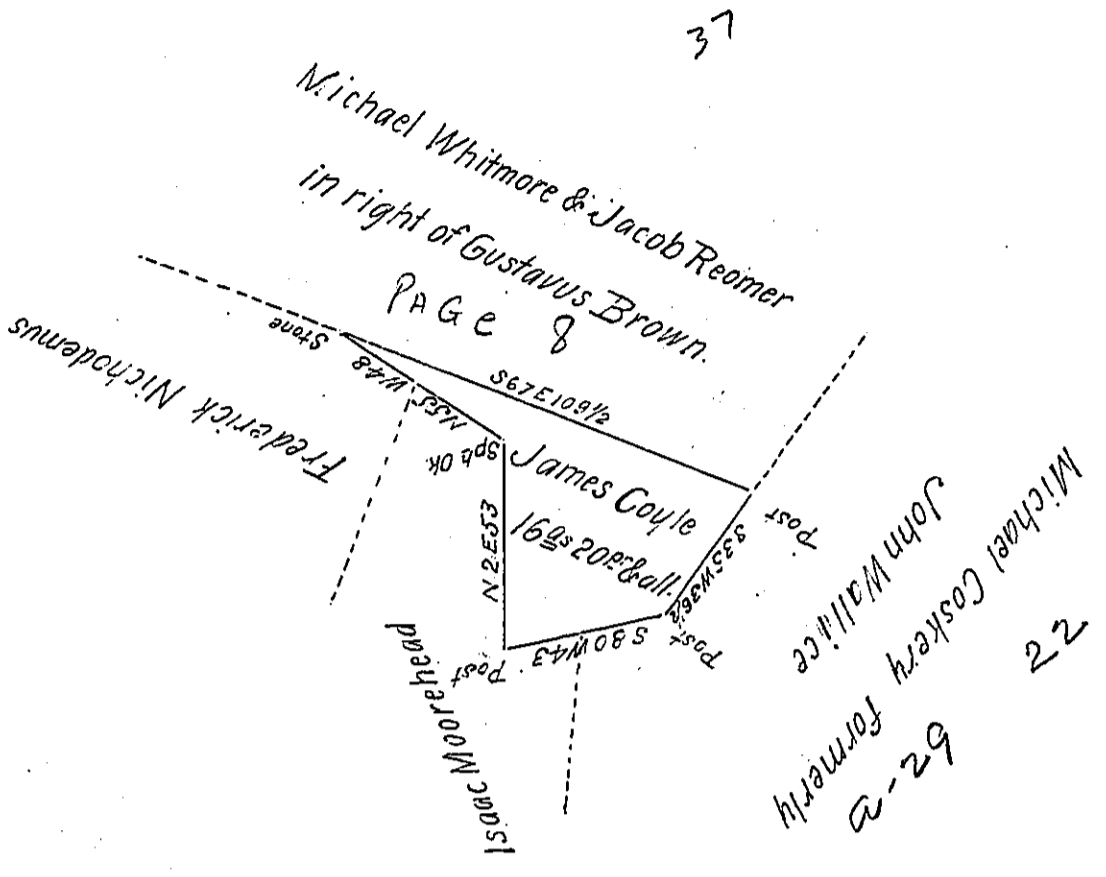 37
Michael Whitmore & Jacob Reomer
in right of Gustavus Brown.
PAGe 8
Stone
N55W48
Frederick Nichodemus
S67E109½
Sph. Ok.
James Coyle
16as 20prs & all.
N2E53
Post
S35W36½
Post
S80W43
Post
Isaac Moorehead
Michael Coskery formerly
John Wallice
22
a-29